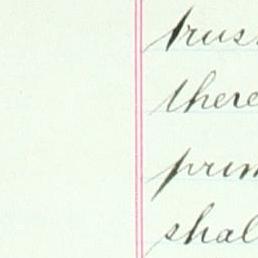 trus
there
prin
shal